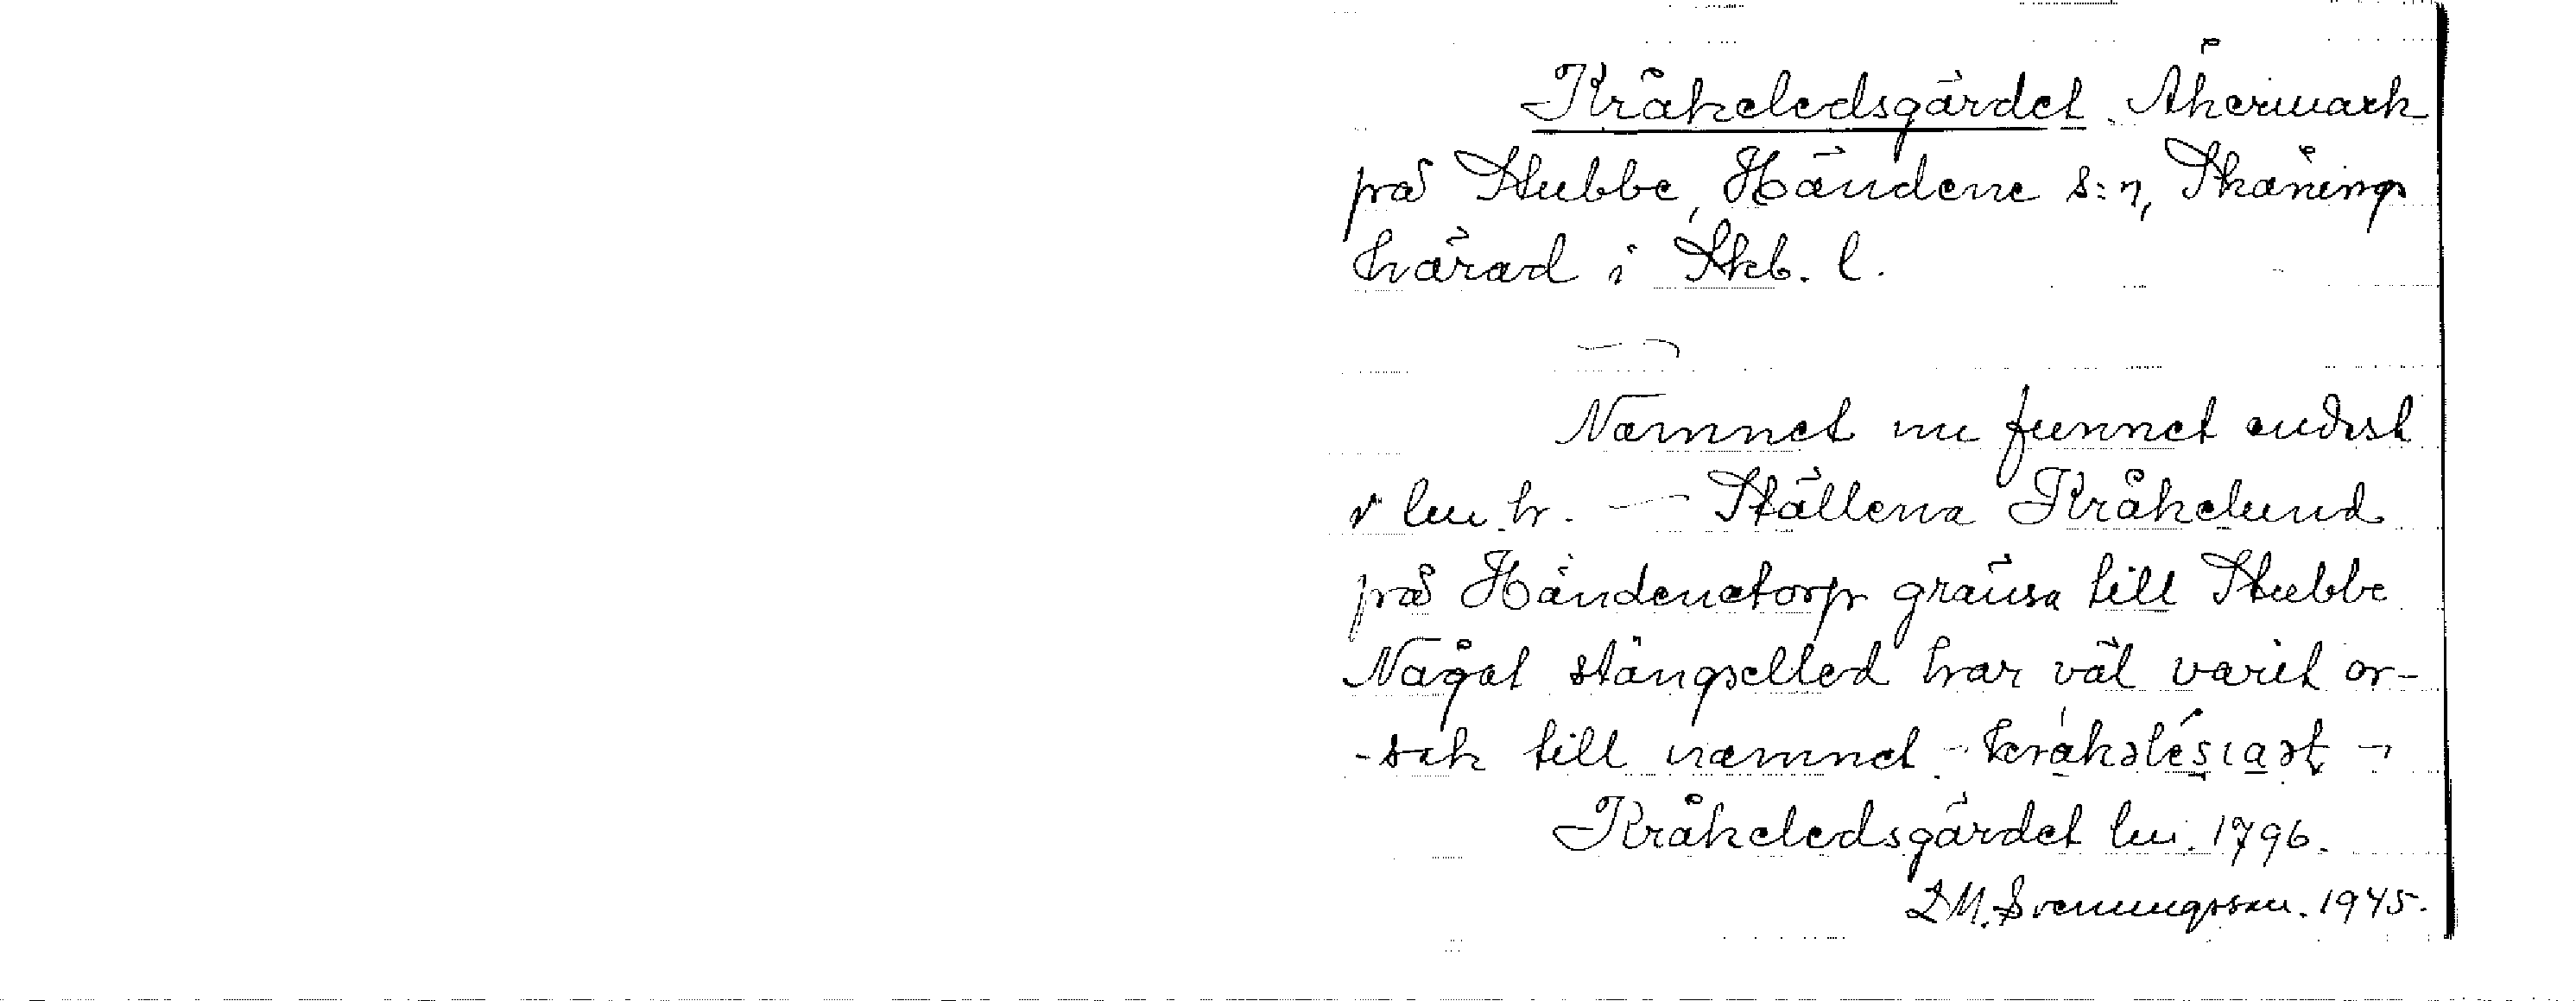 Kråkeledsgärdet. Åkermark
på Stubbe, Händene s:n, Skånings
härad i Skb. l.
Namnet nu funnet endast
i lm. h. — Ställena Kråkelund
på Händenetorp gränsa till Stubbe
Något stängselled har väl varit or-
-sak till namnet -
Kråkeledsgärdet lm. 1796.
D M. Svenungsson. 1945.